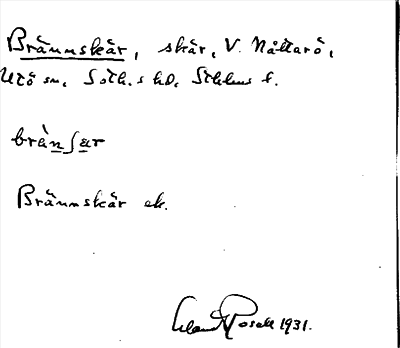 Brännskär, skär, V. Nåttarö,
Utö sn, Soth.s hd, Sthlms l.
brä̀nʃar
Brännskär ek.
Erland Rosell 1931.